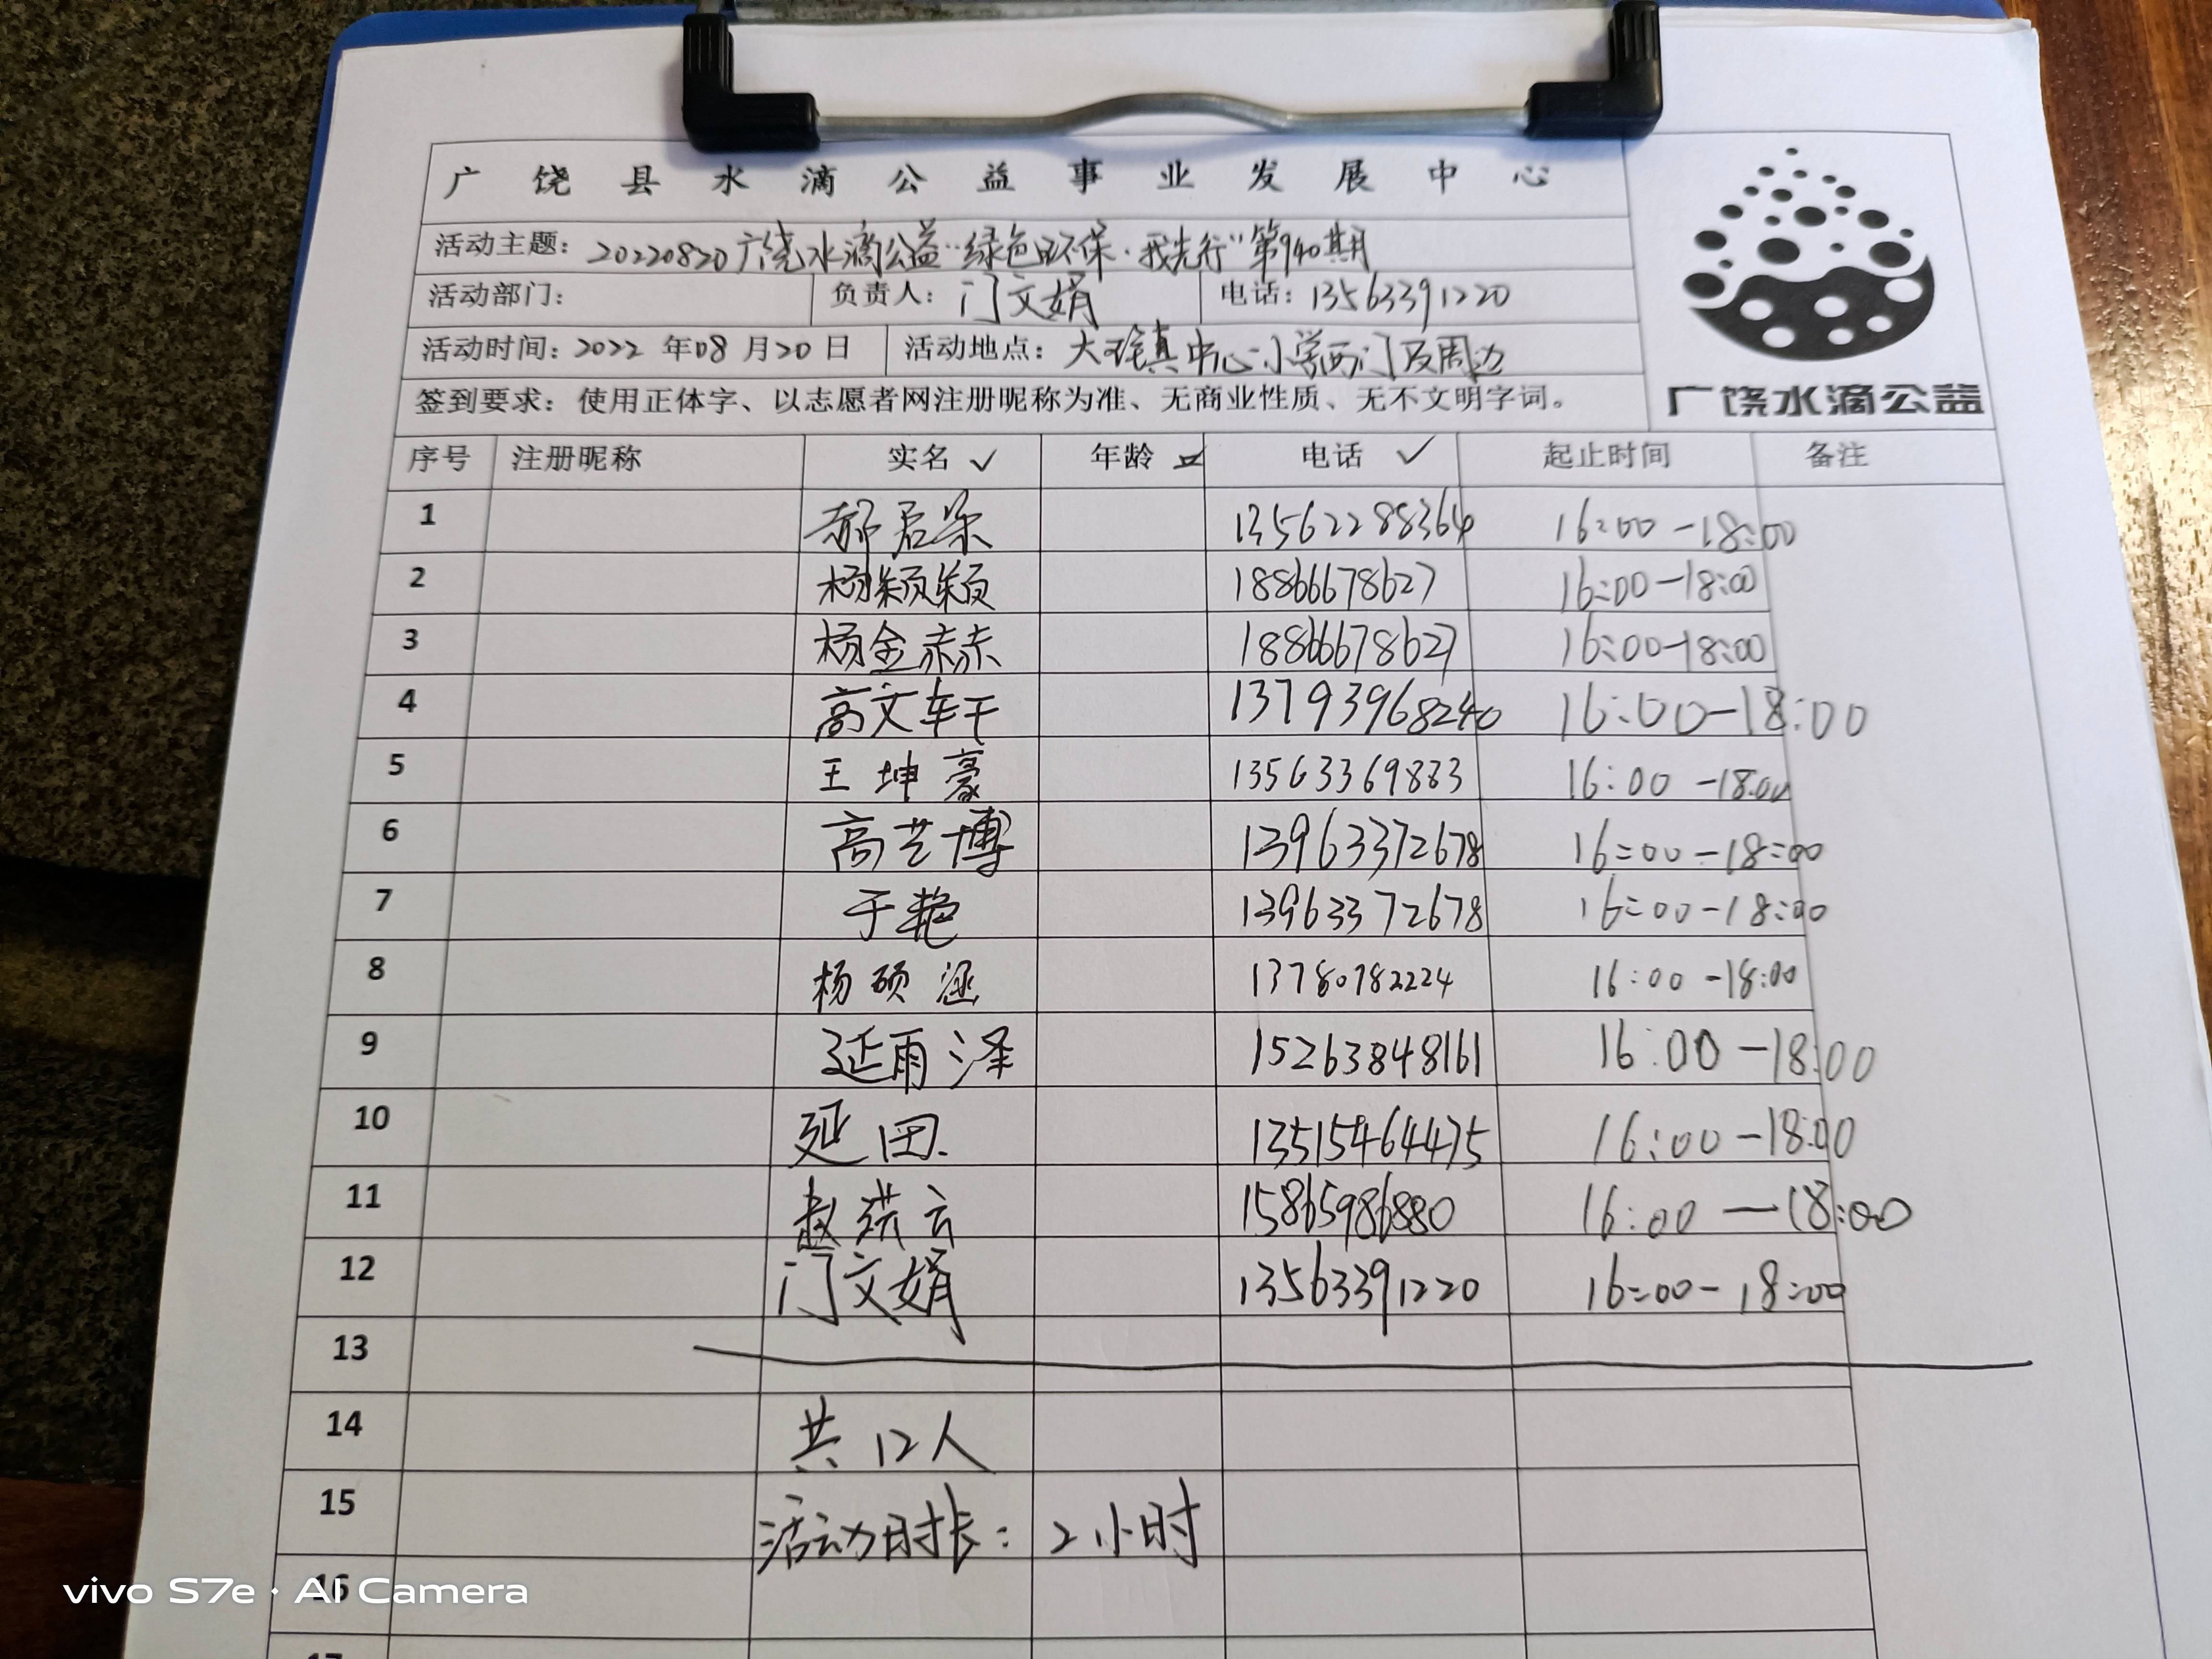 广饶县水滴公益事业发展中心
活动主题：20220820广饶水滴公益“绿色环保·我先行”第940期
活动部门： 负责人：门文娟 电话：13563391220
活动时间：2022年08月20日 活动地点：大王镇中心小学西门及周边
签到要求：使用正体字、以志愿者网注册昵称为准、无商业性质、无不文明字词。
广饶水滴公益
序号 注册昵称 实名 ✓ 年龄 电话 ✓ 起止时间 备注
1 郝君 13562288364 16:00-18:00
2 杨颖颖 18866678627 16:00-18:00
3 杨金赫 18866678627 16:00-18:00
4 高文轩 13793968240 16:00-18:00
5 王坤豪 13563369883 16:00-18:00
6 高艺博 13963372678 16:00-18:00
7 于艳 13963372678 16:00-18:00
8 杨硕涵 13780782224 16:00-18:00
9 延雨泽 15263848161 16:00-18:00
10 延田 13515464475 16:00-18:00
11 赵洪云 15865986880 16:00-18:00
12 门文娟 13563391220 16:00-18:00
13
14 共12人
15 活动时长：2小时
16
17
vivo S7e · AI Camera